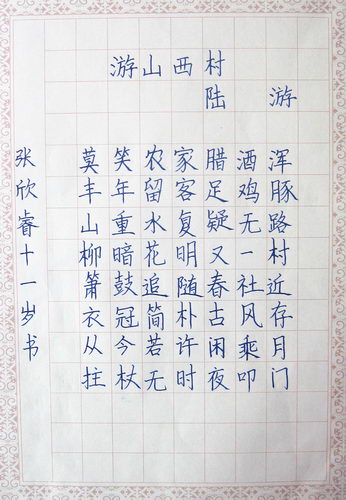 游山西村
陆游
莫笑农家腊酒浑
丰年留客足鸡豚
山重水复疑无路
柳暗花明又一村
箫鼓追随春社近
衣冠简朴古风存
从今若许闲乘月
拄杖无时夜叩门
张欣睿十一岁书